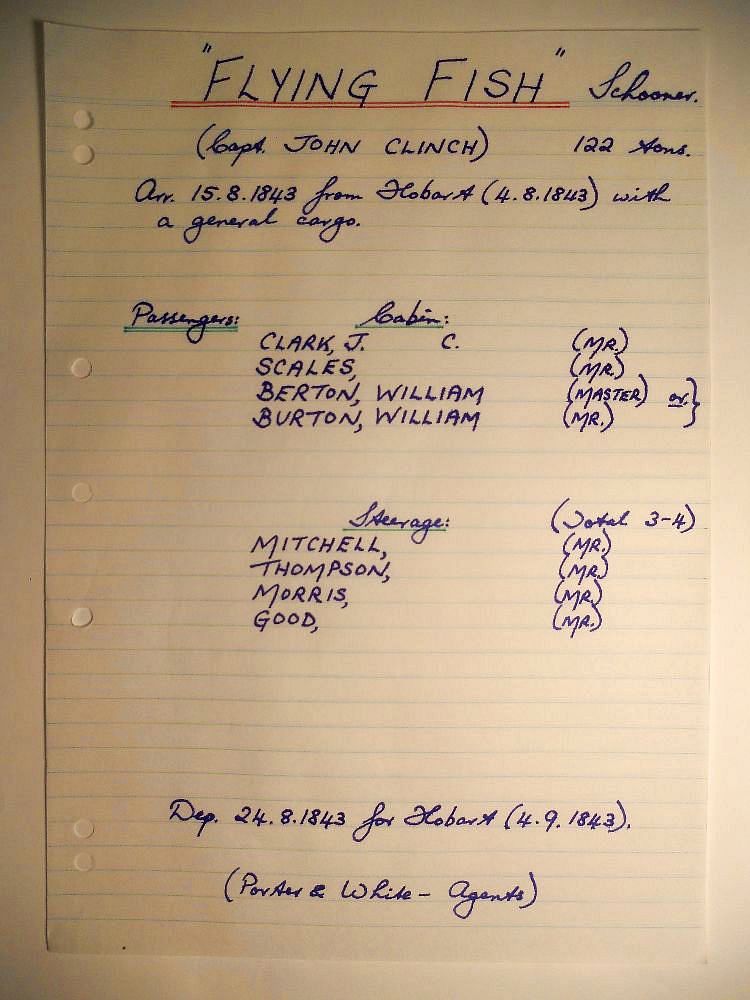 "FLYING FISH" Schooner.
(Capt. JOHN CLINCH) 122 tons.
Arr. 15.8.1843 from Hobart (4.8.1843) with
a general cargo.
Passengers: Cabin:
CLARK, J. C. (MR.)
SCALES, (MR.)
BERTON, WILLIAM (MASTER) or }
BURTON, WILLIAM (MR.)
Steerage: (Total 3-4)
MITCHELL, (MR.)
THOMPSON, (MR.)
MORRIS, (MR.)
GOOD, (MR.)
Dep. 24.8.1843 for Hobart (4.9.1843).
(Porter & White - Agents)